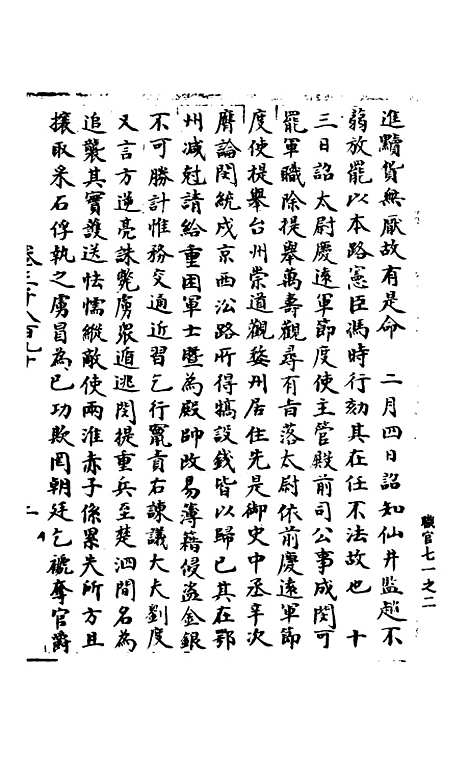 職官七一之二
進黷貨無厭故有是命　二月四日詔知仙井監趙不
蒻放罷以本路憲臣馮時行劾其在任不法故也　十
三日詔太尉慶遠軍節度使主管殿前司公事成閔可
罷軍職除提舉萬壽觀尋有旨落太尉依前慶遠軍節
度使提舉台州崇道觀婺州居住先是御史中丞辛次
膺論閔統戍京西㳂路所得犒設錢皆以歸已其在鄂
州減尅請給重困軍士暨為殿帥改易薄籍侵盜金銀
不可勝計惟務交通近習乞行竄責右諫議大夫劉度
又言方逆亮誅斃虜衆遁逃閔提重兵至楚泗間名為
追襲其實護送怯懦縱敵使兩淮赤子係累失所方且
攘取釆石俘執之虜冒為已功欺罔朝廷乞褫奪官爵
卷三千八百九十